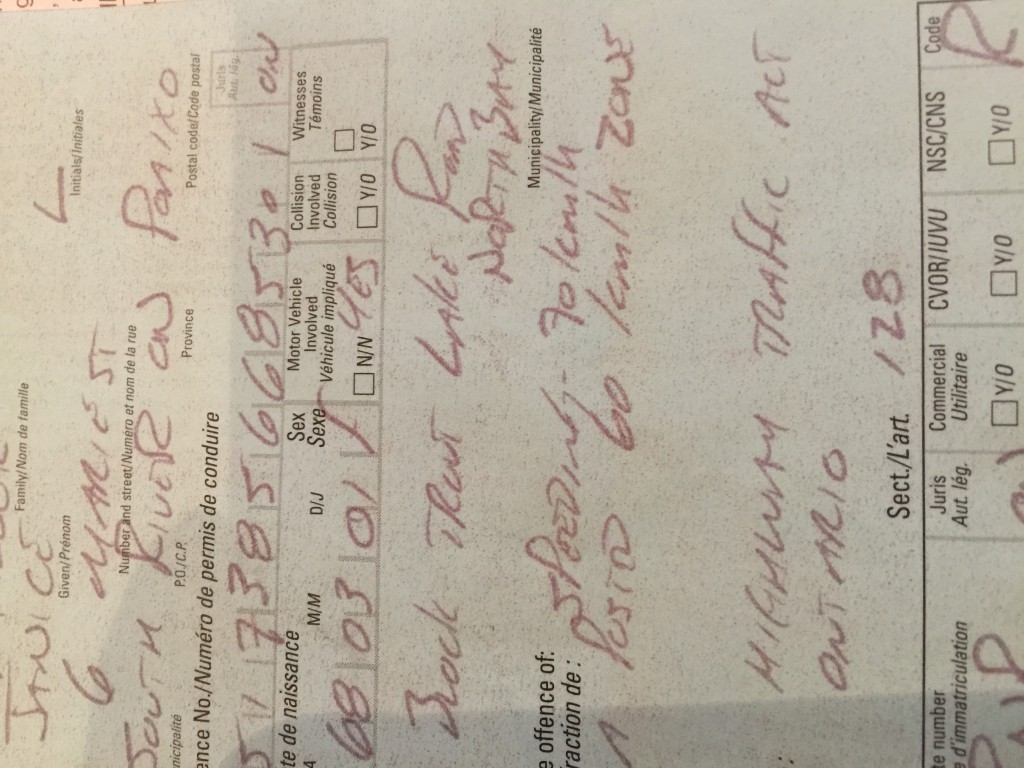 JANICE L
Family/Nom de famille
Given/Prénom Initials/Initiales
6 MARIE ST
Number and street/Numéro et nom de la rue
SOUTH RIVER ON P0A1X0
nicipalité P.O./C.P. Province Postal code/Code postal
ence No./Numéro de permis de conduire Juris Aut. lég.
5 1 1 7 3 8 5 6 6 8 5 3 0 1 ON
te de naissance M/M D/J Sex Sexe Motor Vehicle Involved Véhicule impliqué Collision Involved Collision Witnesses Témoins
68 03 01 N/N YES Y/O Y/O
TROUT LAKE ROAD
NORTH BAY
Municipality/Municipalité
e offence of:
fraction de :
SPEEDING - 70 km/h
POSTED 60 km/h ZONE
HIGHWAY TRAFFIC ACT
ONTARIO
Sect./L'art. 128
te number
e d'immatriculation Juris Aut. lég. Commercial Utilitaire CVOR/IUVU NSC/CNS Code
Y/O Y/O Y/O R